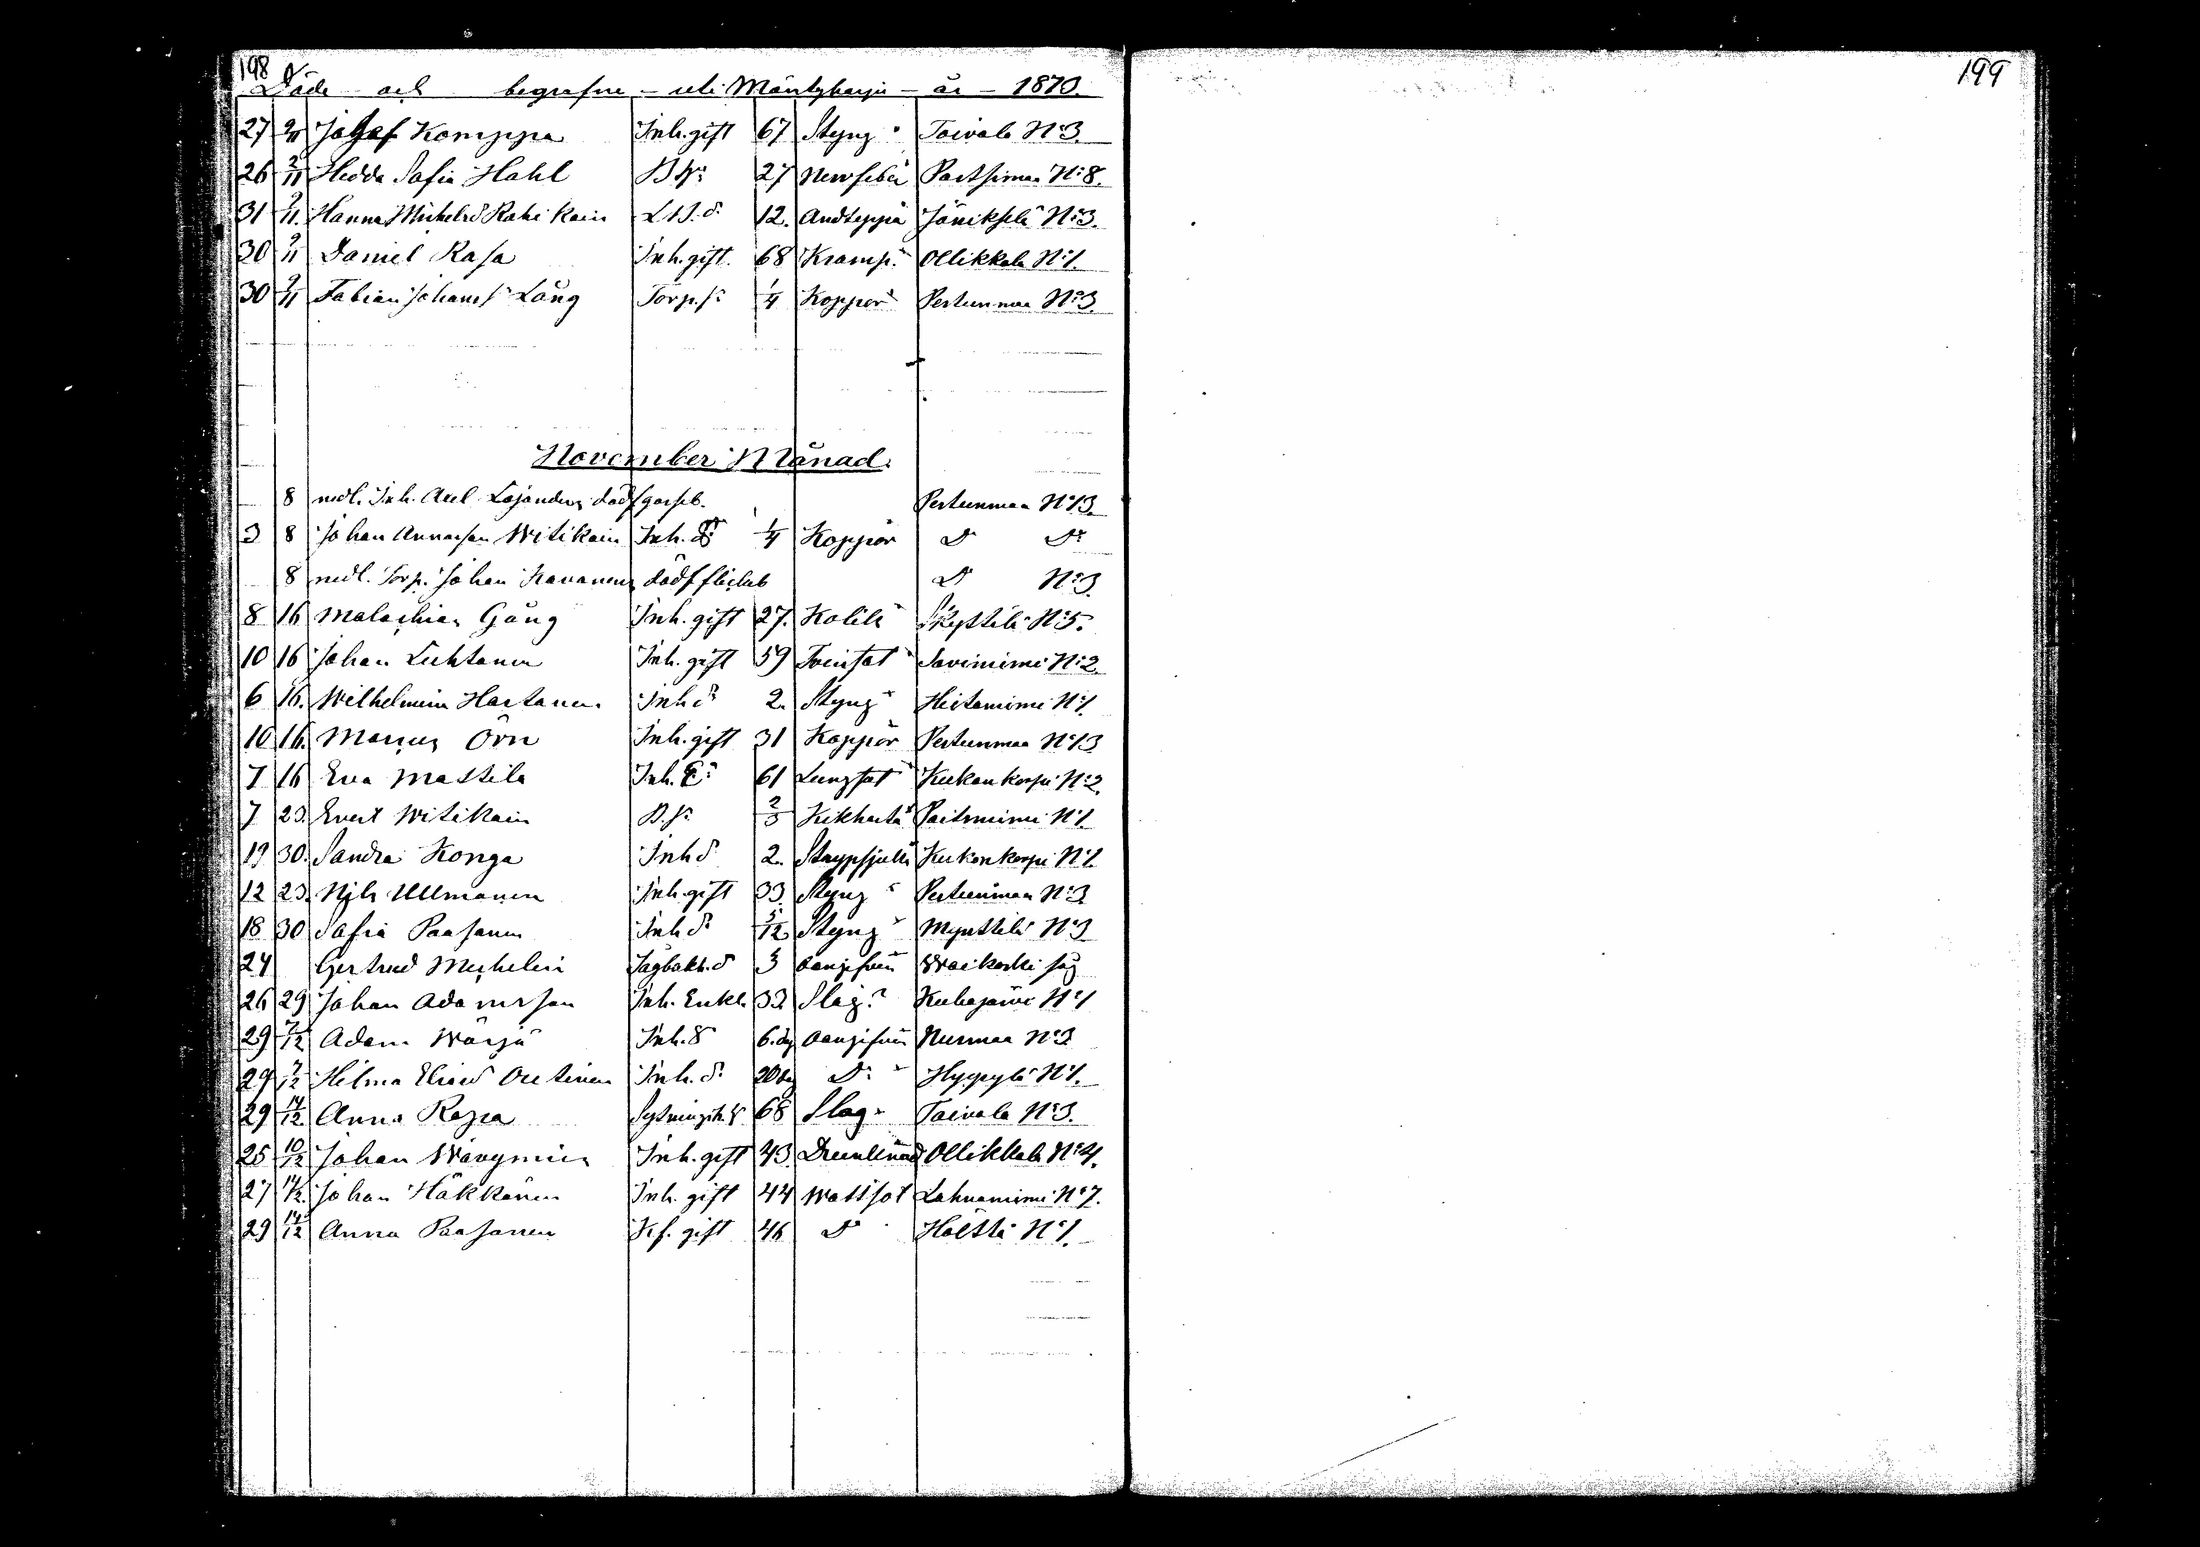 198
199
Döde och begrafne uti Mäntyharju år 1870.
27 2/11 Josef Komppa Inh. gift 67 Styng Toivola N:3.
26 2/11 Hedda Sofia Hahl 27 Nervfeber Partsimaa N:8.
31 9/11 Hanna Michelsd Rahikain 12. Andtäppa Jänikselä N:3.
30 9/11 Daniel Rasa Inh. gift. 68 Kramp. Ollikkala N:1.
30 9/11 Fabian Johans Lång Torp. s: 1/4 Koppor Pertunmaa N:3
November Månad.
8 medl. Inh. Axel Lojanders dödf gosseb. Pertunmaa N:13.
3 8 Johan Witikain Inh. 1/4 Koppor D D:
8 medl. Torp. Johan Havanens dödf flickeb D N:3.
8 16 Malachias Gång Inh. gift 27. Kolik N:5.
10 16 Johan Lehtonen Inh. gift 59 Tvinsot Saviniemi N:2.
6 16. Wilhelmina Hartonen Inh d: 2. Styng Hietaniemi N:1.
10 16. Marcus Örn Inh. gift 31 Koppor Pertunmaa N:13
7 16 Eva Mattila Inh. E: 61 Lungsot Kukonkorpi N:2.
7 23. Evert Witikain B. s: 2/3 Kikhosta Paitsniemi N:1.
19 30. Sandra Konga Inh d 2. Strypsjuka Kukonkorpi N:1.
12 23. Nils Ullmanen Inh. gift 33. Styng Pertunmaa N:3
18 30 Sofia Paasonen Inh d: 5/12 Styng Mynttilä N:3
24 Gertrud Michelin d 3 oangifven Woikoski såg
26 29 Johan Adamsson Inh. Enkl. 32 Slag. Kuhajärvi N:1
29 7/12 Adam Wärjä Inh. S 6. dg oangifven Nurmaa N:3
29 7/12 Hilma Elisab Outinen Inh. d: 20 dg D: Hyypylä N:1.
29 14/12 Anna Reppa 68 Slag Toivola N:3.
25 10/12 Johan Wäyrynen Inh. gift 43. Drunknad Ollikkala N:4.
27 14/12 Johan Häkkänen Inh. gift 44 Wattsot Lahnaniemi N:7.
29 14/12 Anna Paasonen gift 46 D Höltti N:1.